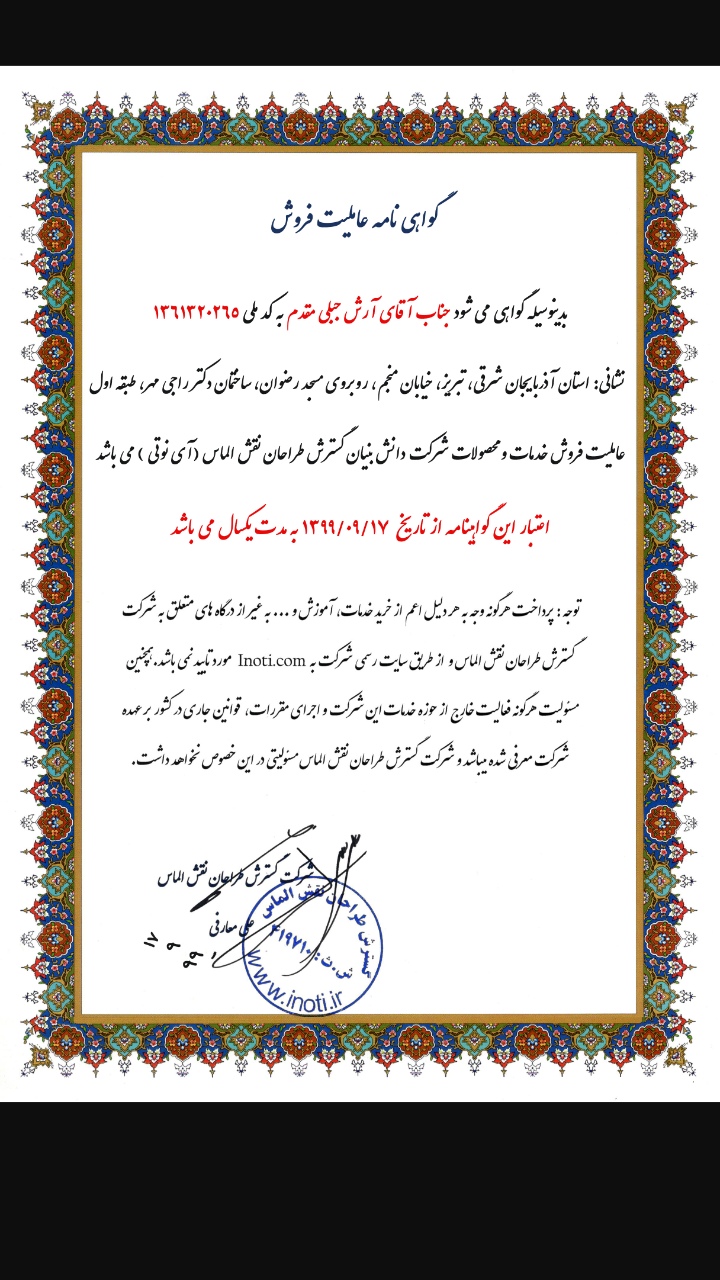 گواهی نامه عاملیت فروش
بدینوسیله گواهی می شود جناب آقای آرش جبلی مقدم به کد ملی ۱۳۶۱۳۲۰۲۶۵
نشانی: استان آذربایجان شرقی، تبریز، خیابان منجم، روبروی مسجد رضوان، ساختمان دکتر راجی مهر، طبقه اول
عاملیت فروش خدمات و محصولات شرکت دانش بنیان گسترش طراحان نقش الماس (آی نوتی) می باشد
اعتبار این گواهینامه از تاریخ ۱۳۹۹/۰۹/۱۷ به مدت یکسال می باشد
توجه: پرداخت هرگونه وجه به هر دلیل اعم از خرید خدمات، آموزش و ... به غیر از درگاه های متعلق به شرکت
گسترش طراحان نقش الماس و از طریق سایت رسمی شرکت به Inoti.com مورد تایید نمی باشد. همچنین
مسئولیت هرگونه فعالیت خارج از حوزه خدمات این شرکت و اجرای مقررات، قوانین جاری در کشور بر عهده
شرکت معرفی شده میباشد و شرکت گسترش طراحان نقش الماس مسئولیتی در این خصوص نخواهد داشت.
شرکت گسترش طراحان نقش الماس
علی معارفی
۹۹ ۹ ۱۷
گسترش طراحان نقش الماس
ش.ث: ۴۱۹۷۱۰
www.inoti.ir